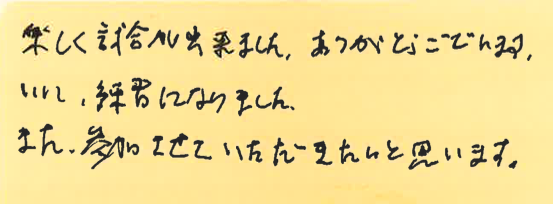 楽しく試合が出来ました。ありがとうございます。
いい、練習になりました。
また、参加させていただきたいと思います。